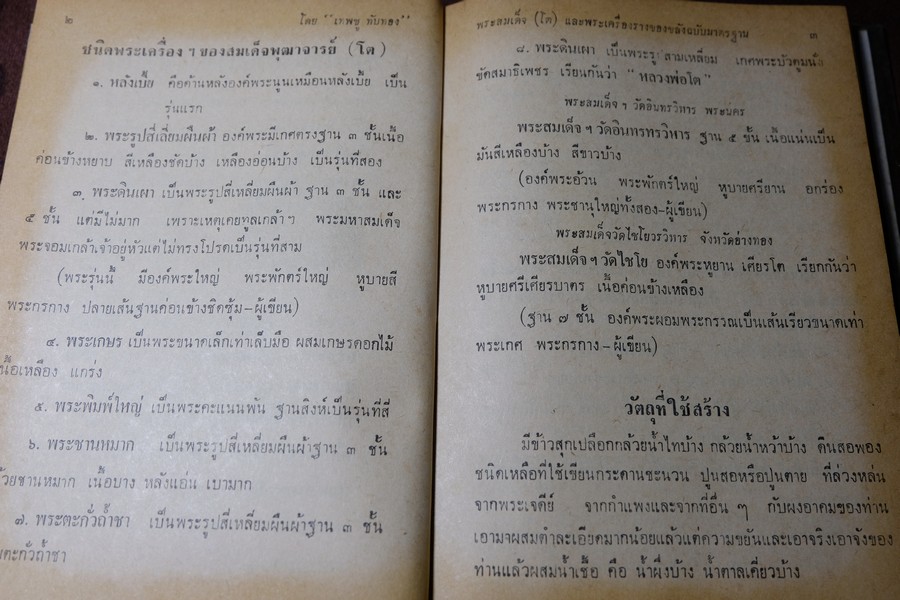 ๒ โดย "เทพชู ทับทอง"
ชนิดพระเครื่อง ฯ ของสมเด็จพุฒาจารย์ (โต)
๑. หลังเบี้ย คือด้านหลังองค์พระนูนเหมือนหลังเบี้ย เป็น
รุ่นแรก
๒. พระรูปสี่เลี่ยมผืนผ้า องค์พระมีเกศตรงฐาน ๓ ชั้นเนื้อ
ค่อนข้างหยาบ สีเหลืองชัดบ้าง เหลืองอ่อนบ้าง เป็นรุ่นที่สอง
๓. พระดินเผา เป็นพระรูปสี่เหลี่ยมผืนผ้า ฐาน ๓ ชั้น และ
๕ ชั้น แต่มีไม่มาก เพราะเหตุเคยทูลเกล้าฯ พระมหาสมเด็จ
พระจอมเกล้าเจ้าอยู่หัวแต่ไม่ทรงโปรดเป็นรุ่นที่สาม
(พระรุ่นนี้ มีองค์พระใหญ่ พระพักตร์ใหญ่ หูบายสี
พระกรกาง ปลายเส้นฐานค่อนข้างชิดซุ้ม-ผู้เขียน)
๔. พระเกษร เป็นพระขนาดเล็กเท่าเล็บมือ ผสมเกษรดอกไม้
นื้อเหลือง แกร่ง
๕. พระพิมพ์ใหญ่ เป็นพระคะแนนพัน ฐานสิงห์เป็นรุ่นที่สี่
๖. พระชานหมาก เป็นพระรูปสี่เหลี่ยมผืนผ้าฐาน ๓ ชั้น
้วยชานหมาก เนื้อบาง หลังแอ่น เบามาก
๗. พระตะกั่วถ้ำชา เป็นพระรูปสี่เหลี่ยมผืนผ้าฐาน ๓ ชั้น
ยตะกั่วถ้ำชา
พระสมเด็จ (โต) และพระเครื่องรางของขลังฉบับมาตรฐาน ๓
๘. พระดินเผา เป็นพระรูปสามเหลี่ยม เกศพระบัวตูมนั่ง
ขัดสมาธิเพชร เรียกกันว่า "หลวงพ่อโต"
พระสมเด็จ ฯ วัดอินทรวิหาร พระนคร
พระสมเด็จ ฯ วัดอินทรทรวิหาร ฐาน ๕ ชั้น เนื้อแน่นเป็น
มันสีเหลืองบ้าง สีขาวบ้าง
(องค์พระอ้วน พระพักตร์ใหญ่ หูบายศรียาน อกร่อง
พระกรกาง พระชานุใหญ่ทั้งสอง-ผู้เขียน)
พระสมเด็จวัดไชโยวรวิหาร จังหวัดอ่างทอง
พระสมเด็จ ฯ วัดไชโย องค์พระหูยาน เศียรโต เรียกกันว่า
หูบายศรีเศียรบาตร เนื้อค่อนข้างเหลือง
(ฐาน ๗ ชั้น องค์พระผอมพระกรรณเป็นเส้นเรียวขนาดเท่า
พระเกศ พระกรกาง-ผู้เขียน)
วัตถุที่ใช้สร้าง
มีข้าวสุกเปลือกกล้วยน้ำไทบ้าง กล้วยน้ำหว้าบ้าง ดินสอพอง
ชนิดเหลือที่ใช้เขียนกระดานชะนวน ปูนสอหรือปูนตาย ที่ล่วงหล่น
จากพระเจดีย์ จากกำแพงและจากที่อื่น ๆ กับผงอาคมของท่าน
เอามาผสมตำละเอียดมากน้อยแล้วแต่ความขยันและเอาจริงเอาจังของ
ท่านแล้วผสมน้ำเชื้อ คือ น้ำผึ้งบ้าง น้ำตาลเคี่ยวบ้าง